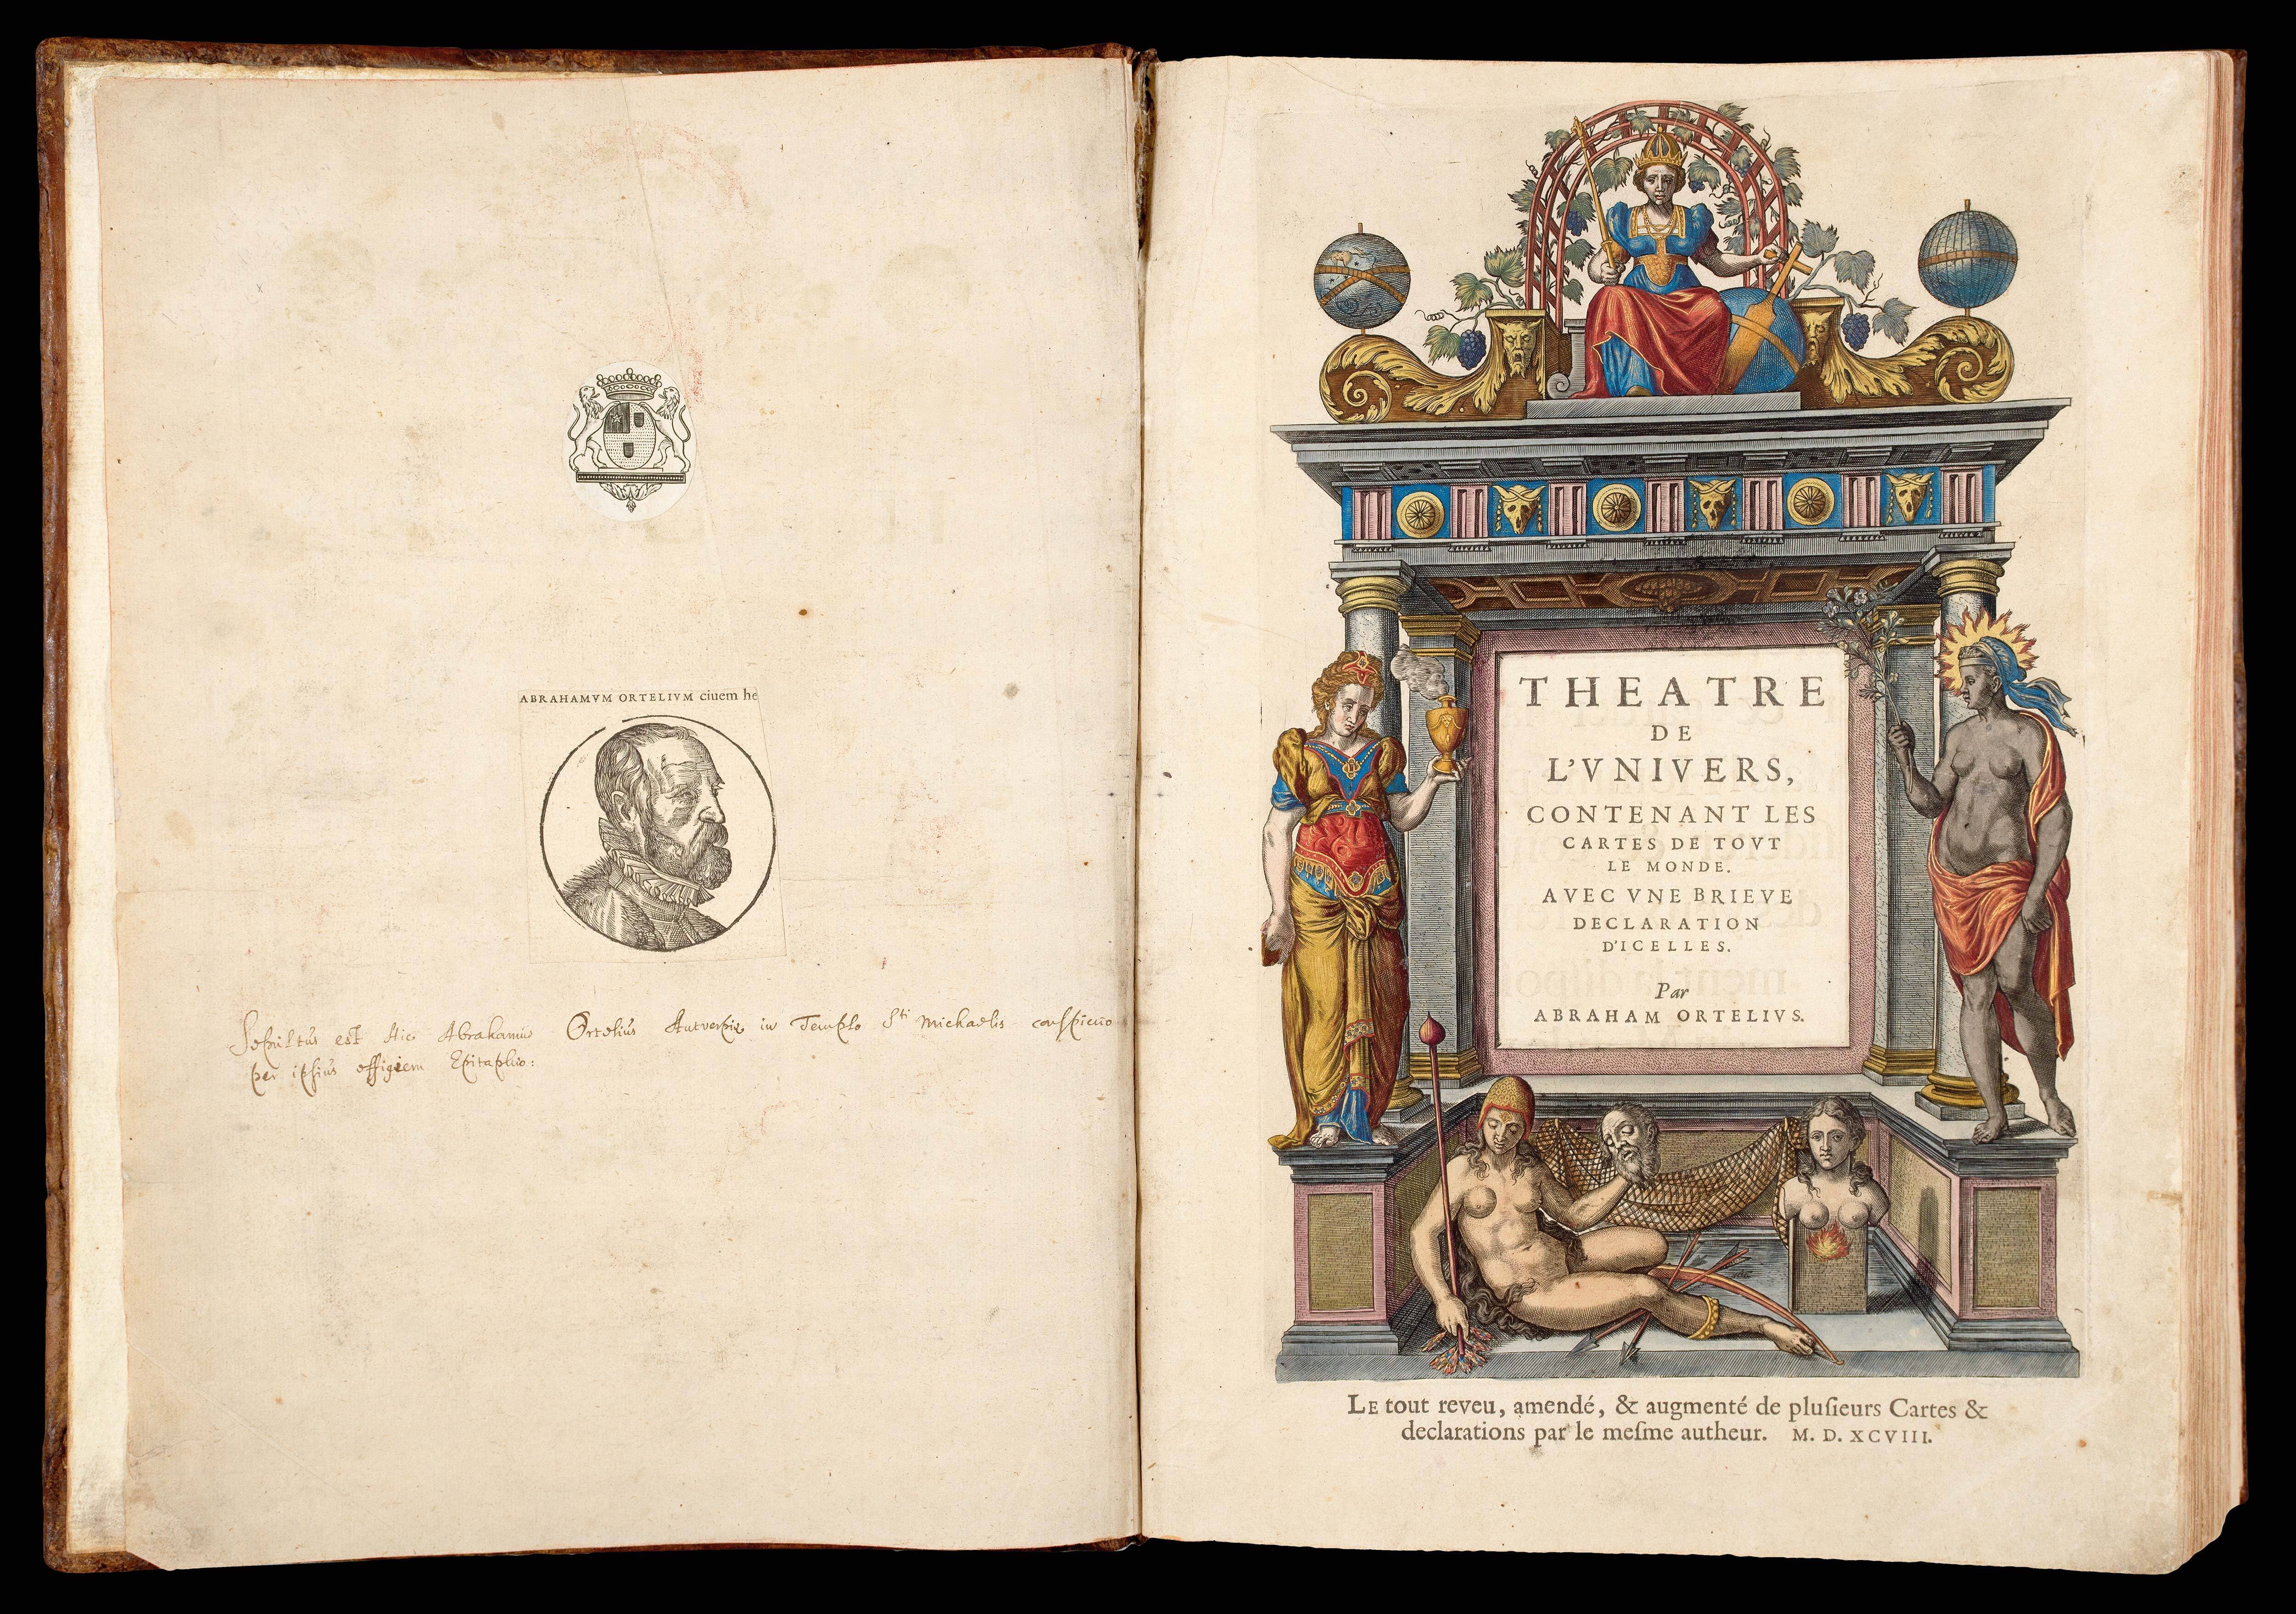 ABRAHAMVM ORTELIVM ciuem he
Sepultus est Hic Abrahamus Ortelius Antverpiæ in Templo Sti Michaelis conspicuo
per ipsius effigiem Epitaphio:
THEATRE
DE
L'VNIVERS,
CONTENANT LES
CARTES DE TOVT
LE MONDE.
AVEC VNE BRIEVE
DECLARATION
D'ICELLES.
Par
ABRAHAM ORTELIVS.
LE tout reveu, amendé, & augmenté de pluſieurs Cartes &
declarations par le meſme autheur. M. D. XCVIII.